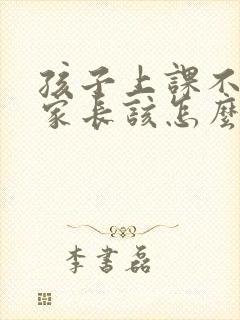 孩子上課不
家長該怎麼
李書磊